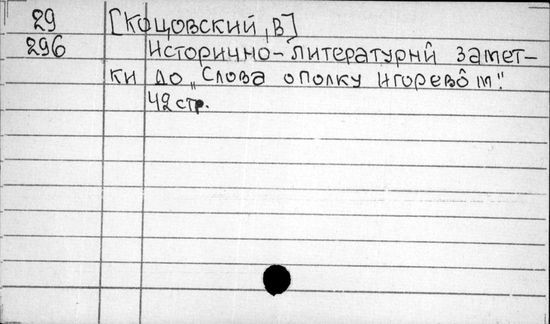 29 [Коцовский, В]
296 Историчнô-литературнй замет-
ки до „Слова о полку Игоревôм".
42 стр.